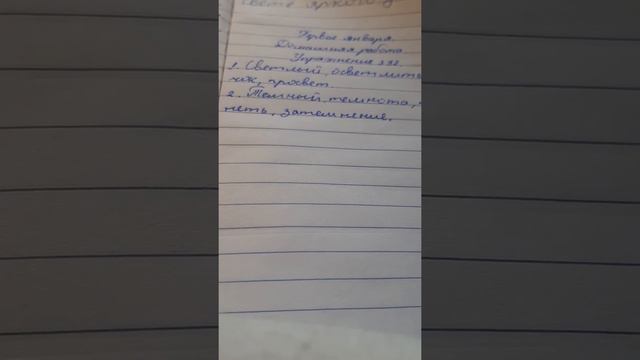 свете яркого
Первое января.
Домашняя работа
Упражнение 332.
1. Светлый, осветлить
чик, просвет.
2. Темный, темнота,
неть, затемнение.